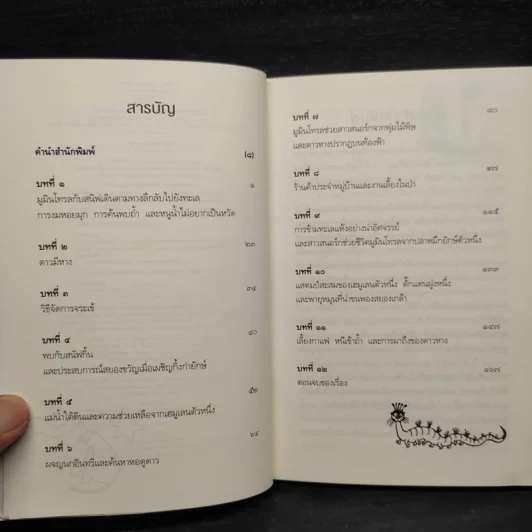 สารบัญ
คำนำสำนักพิมพ์ (๘)
บทที่ ๑ ๑
มูมินโทรลกับสนิฟเดินตามทางลึกลับไปยังทะเล
การงมหอยมุก การค้นพบถ้ำ และหนูน้ำไม่อยากเป็นหวัด
บทที่ ๒ ๒๓
ดาวมีหาง
บทที่ ๓ ๓๔
วิธีจัดการจระเข้
บทที่ ๔ ๔๐
พบกับสนัฟกิ้น
และประสบการณ์สยองขวัญเมื่อเผชิญกิ้งก่ายักษ์
บทที่ ๕ ๕๒
แม่น้ำใต้ดินและความช่วยเหลือจากเฮมูเลนตัวหนึ่ง
บทที่ ๖ ๖๔
ผจญนกอินทรีและค้นหาหอดูดาว
บทที่ ๗ ๘๐
มูมินโทรลช่วยสาวสนอร์กจากพุ่มไม้พิษ
และดาวหางปรากฏบนท้องฟ้า
บทที่ ๘ ๙๗
ร้านค้าประจำหมู่บ้านและงานเลี้ยงในป่า
บทที่ ๙ ๑๑๕
การข้ามทะเลแห้งอย่างน่าอัศจรรย์
และสาวสนอร์กช่วยชีวิตมูมินโทรลจากปลาหมึกยักษ์ตัวหนึ่ง
บทที่ ๑๐ ๑๓๓
แสตมป์สะสมของเฮมูเลนตัวหนึ่ง ตั๊กแตนฝูงหนึ่ง
และพายุหมุนที่น่าขนพองสยองเกล้า
บทที่ ๑๑ ๑๔๗
เลี้ยงกาแฟ หนีเข้าถ้ำ และการมาถึงของดาวหาง
บทที่ ๑๒ ๑๖๗
ตอนจบของเรื่อง